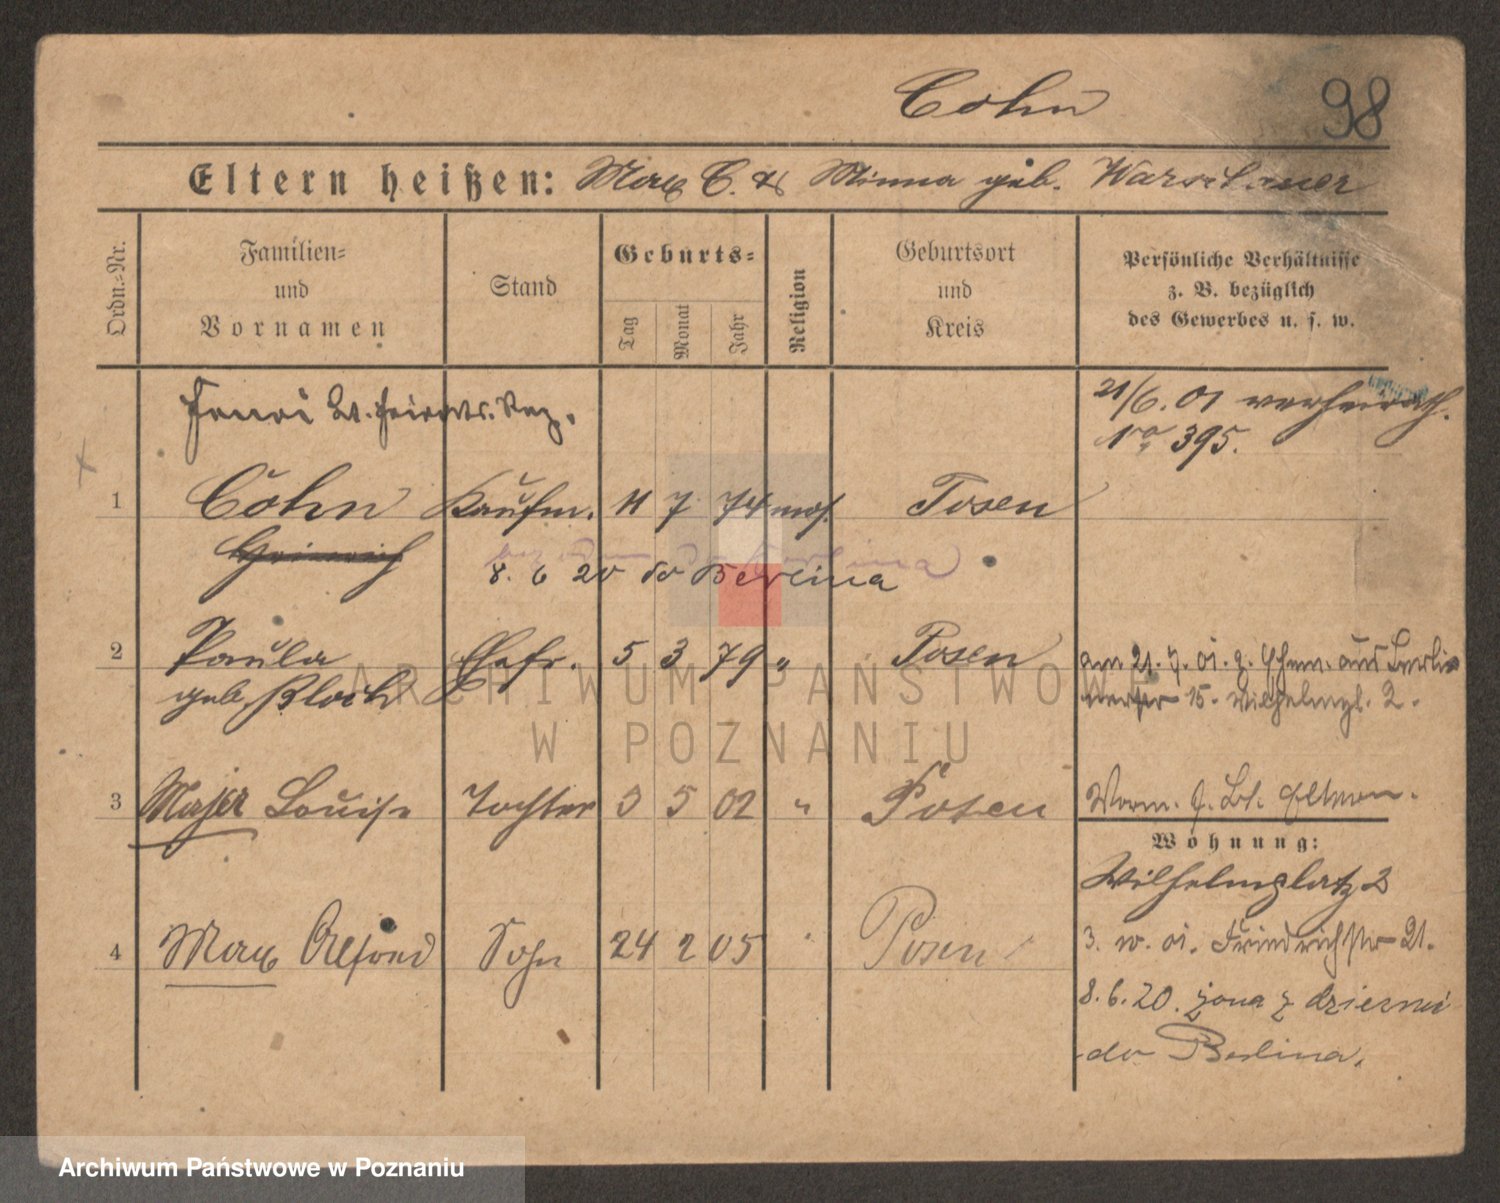 Cohn
98
Eltern heißen: Max C. & Minna geb. Warschauer
Ordn.-Nr.
Familien-
und
Vornamen
Stand
Geburts-
Tag
Monat
Jahr
Religion
Geburtsort
und
Kreis
Persönliche Verhältnisse
z. B. bezüglich
des Gewerbes u. s. w.
Henri lt. Heirats. Reg.
21/6. 01 verheirath.
No 395.
1 Cohn Kaufm. 11 7 74 mos. Posen
Heinrich
8. 6 20 do Berlina
2 Paula Ehefr. 5 3 79 " Posen
geb. Bloch
am 21. 7. 01. z. Ehem. aus Berliner
15. Wilhelmpl. 2.
3 Majer Louise Tochter 3 5 02 " Posen
Vorm. f. Bl. Eltern.
Wohnung:
Wilhelmplatz 2
4 Max Alfred Sohn 24 2 05 " Posen
3. 10. 01. Friedrichstr 21.
8. 6. 20. żona z dziećmi
do Berlina.
ARCHIWUM PAŃSTWOWE
W POZNANIU
Archiwum Państwowe w Poznaniu